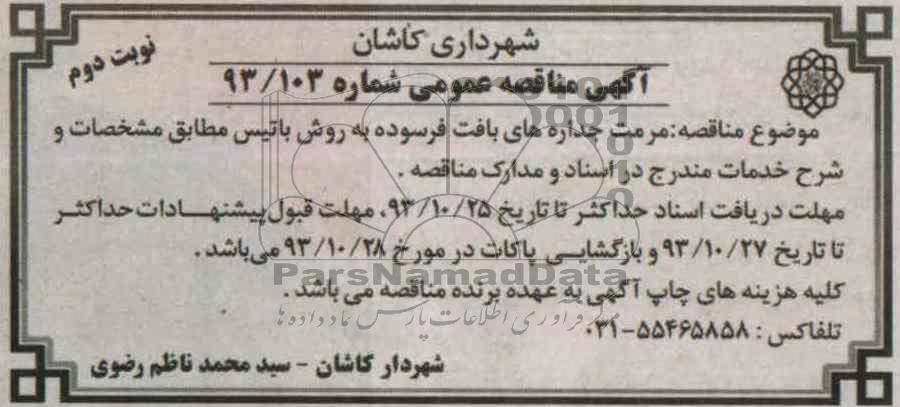 شهرداری کاشان
نوبت دوم
آگهی مناقصه عمومی شماره ۹۳/۱۰۳
موضوع مناقصه:مرمت جداره های بافت فرسوده به روش باتیس مطابق مشخصات و
شرح خدمات مندرج در اسناد و مدارک مناقصه .
مهلت دریافت اسناد حداکثر تا تاریخ ۹۳/۱۰/۲۵، مهلت قبول پیشنهادات حداکثر
تا تاریخ ۹۳/۱۰/۲۷ و بازگشایی پاکات در مورخ ۹۳/۱۰/۲۸ می باشد .
ParsNamadData
کلیه هزینه های چاپ آگهی به عهده برنده مناقصه می باشد .
مرکز فرآوری اطلاعات پارس نماد داده ها
تلفاکس : ۵۵۴۶۵۸۵۸-۰۳۱
شهردار کاشان - سید محمد ناظم رضوی